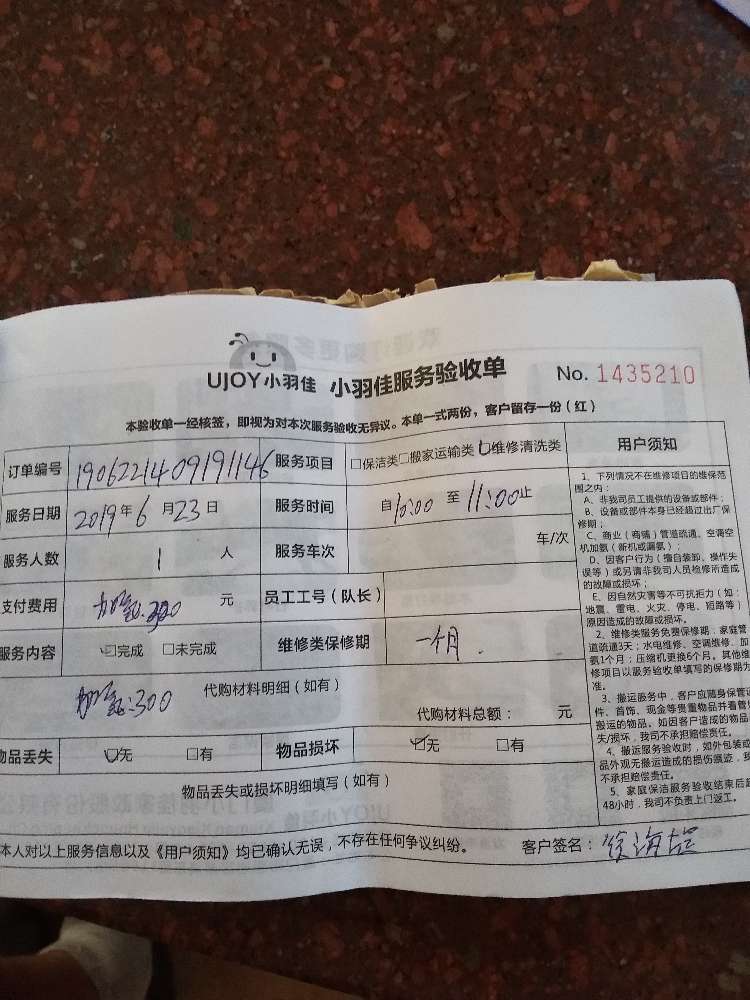 UJOY小羽佳 小羽佳服务验收单 No. 1435210
本验收单一经核签，即视为对本次服务验收无异议。本单一式两份，客户留存一份（红）
订单编号 1906221409191146 服务项目 □保洁类□搬家运输类□维修清洗类 用户须知
服务日期 2019年6月23日 服务时间 自10:00至11:00止
服务人数 1 人 服务车次 车/次
支付费用 加氨:300 元 员工工号（队长）
服务内容 □完成 □未完成 维修类保修期 一个月
加氨:300 代购材料明细（如有） 代购材料总额： 元
物品丢失 □无 □有 物品损坏 □无 □有
物品丢失或损坏明细填写（如有）
本人对以上服务信息以及《用户须知》均已确认无误，不存在任何争议纠纷。 客户签名：徐海
1、下列情况不在维修项目的维保范
围之内：
A、非我司员工提供的设备或部件；
B、设备或部件本身已经超过出厂保
修期；
C、商业（商铺）管道疏通、空调空
机加氨（新机或漏氨）；
D、因客户行为（擅自装卸、操作失
误等）或另请非我司人员检修所造成
的故障或损坏；
E、因自然灾害等不可扰拒力（如：
地震、雷电、火灾、停电、短路等）
原因造成的故障或损坏。
2、维修类服务免费保修期：家庭管
道疏通3天；水电维修、空调维修、加
氨1个月；压缩机更换6个月。其他维
修项目以服务验收单填写的保修期为
准。
3、搬运服务中，客户应随身保管证
件、首饰、现金等贵重物品并看管
搬运的物品。如因客户造成的物品
失/损坏，我司不承担赔偿责任。
4、搬运服务验收时，如外包装或
品外观无搬运造成的损伤痕迹，我
不承担赔偿责任。
5、家庭保洁服务验收结束后超
48小时，我司不负责上门返工。